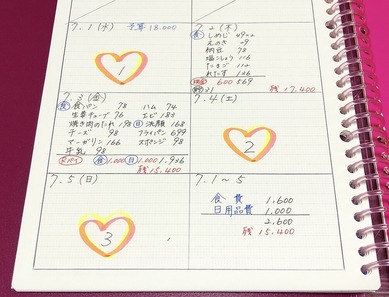 7.1 (水) 予算 18.000
1
7.2 (木)
食 しめじ
えのき
納豆 78
塩こしょう
たまご
れたす
600 569
残 17.400
7.3 (金)
食 食パン 78 ハム 74
生姜チューブ 76 エビ 183
焼き肉のたれ 198 日 洗顔 168
チーズ 98 フライパン 699
マーガリン 166 スポンジ 98
牛乳 98
食 1.000 日 1.000
残 15.400
7.4 (土)
2
7.5 (日)
3
7.1~5
食費 1.600
日用品費 1.000
2.600
残 15.400